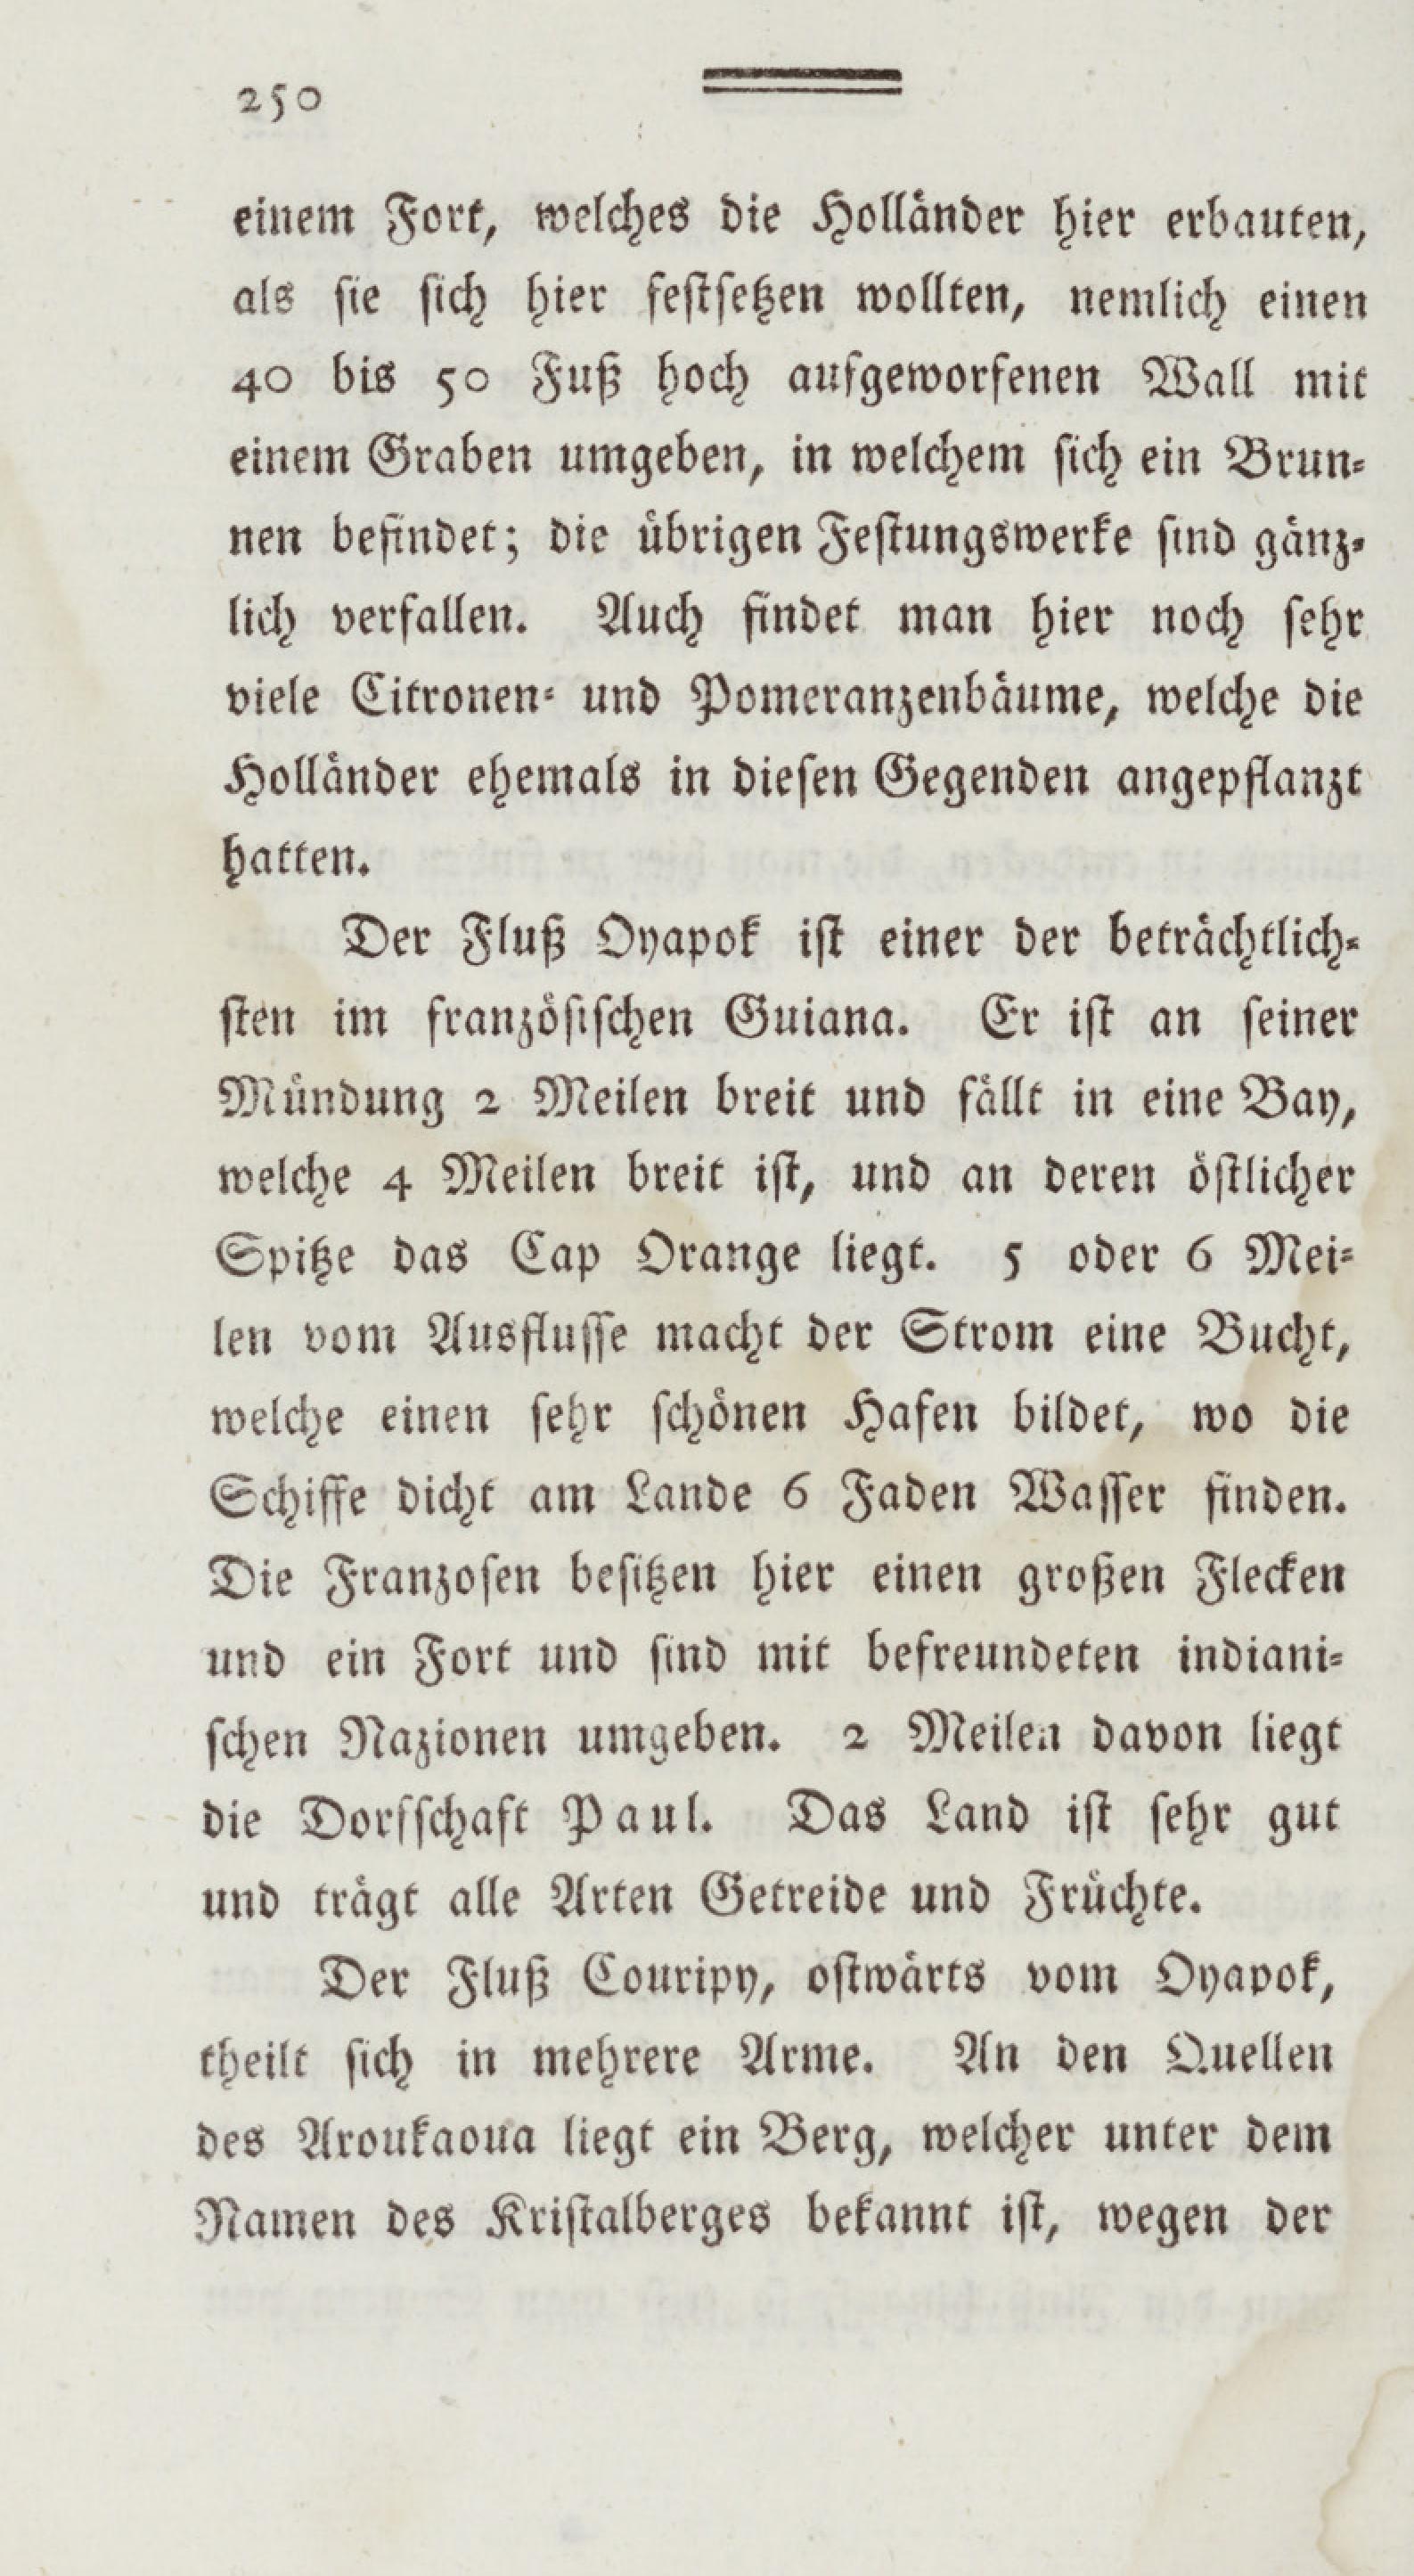 250
einem Fort, welches die Holländer hier erbauten,
als sie sich hier festsetzen wollten, nemlich einen
40 bis 50 Fuß hoch aufgeworfenen Wall mit
einem Graben umgeben, in welchem sich ein Brun-
nen befindet; die übrigen Festungswerke sind gänz-
lich verfallen. Auch findet man hier noch sehr
viele Citronen- und Pomeranzenbäume, welche die
Holländer ehemals in diesen Gegenden angepflanzt
hatten.
Der Fluß Oyapok ist einer der beträchtlich-
sten im französischen Guiana. Er ist an seiner
Mündung 2 Meilen breit und fällt in eine Bay,
welche 4 Meilen breit ist, und an deren östlicher
Spitze das Cap Orange liegt. 5 oder 6 Mei-
len vom Ausflusse macht der Strom eine Bucht,
welche einen sehr schönen Hafen bildet, wo die
Schiffe dicht am Lande 6 Faden Wasser finden.
Die Franzosen besitzen hier einen großen Flecken
und ein Fort und sind mit befreundeten indiani-
schen Nazionen umgeben. 2 Meilen davon liegt
die Dorfschaft Paul. Das Land ist sehr gut
und trägt alle Arten Getreide und Früchte.
Der Fluß Couripy, ostwärts vom Oyapok,
theilt sich in mehrere Arme. An den Quellen
des Aroukaoua liegt ein Berg, welcher unter dem
Namen des Kristalberges bekannt ist, wegen der